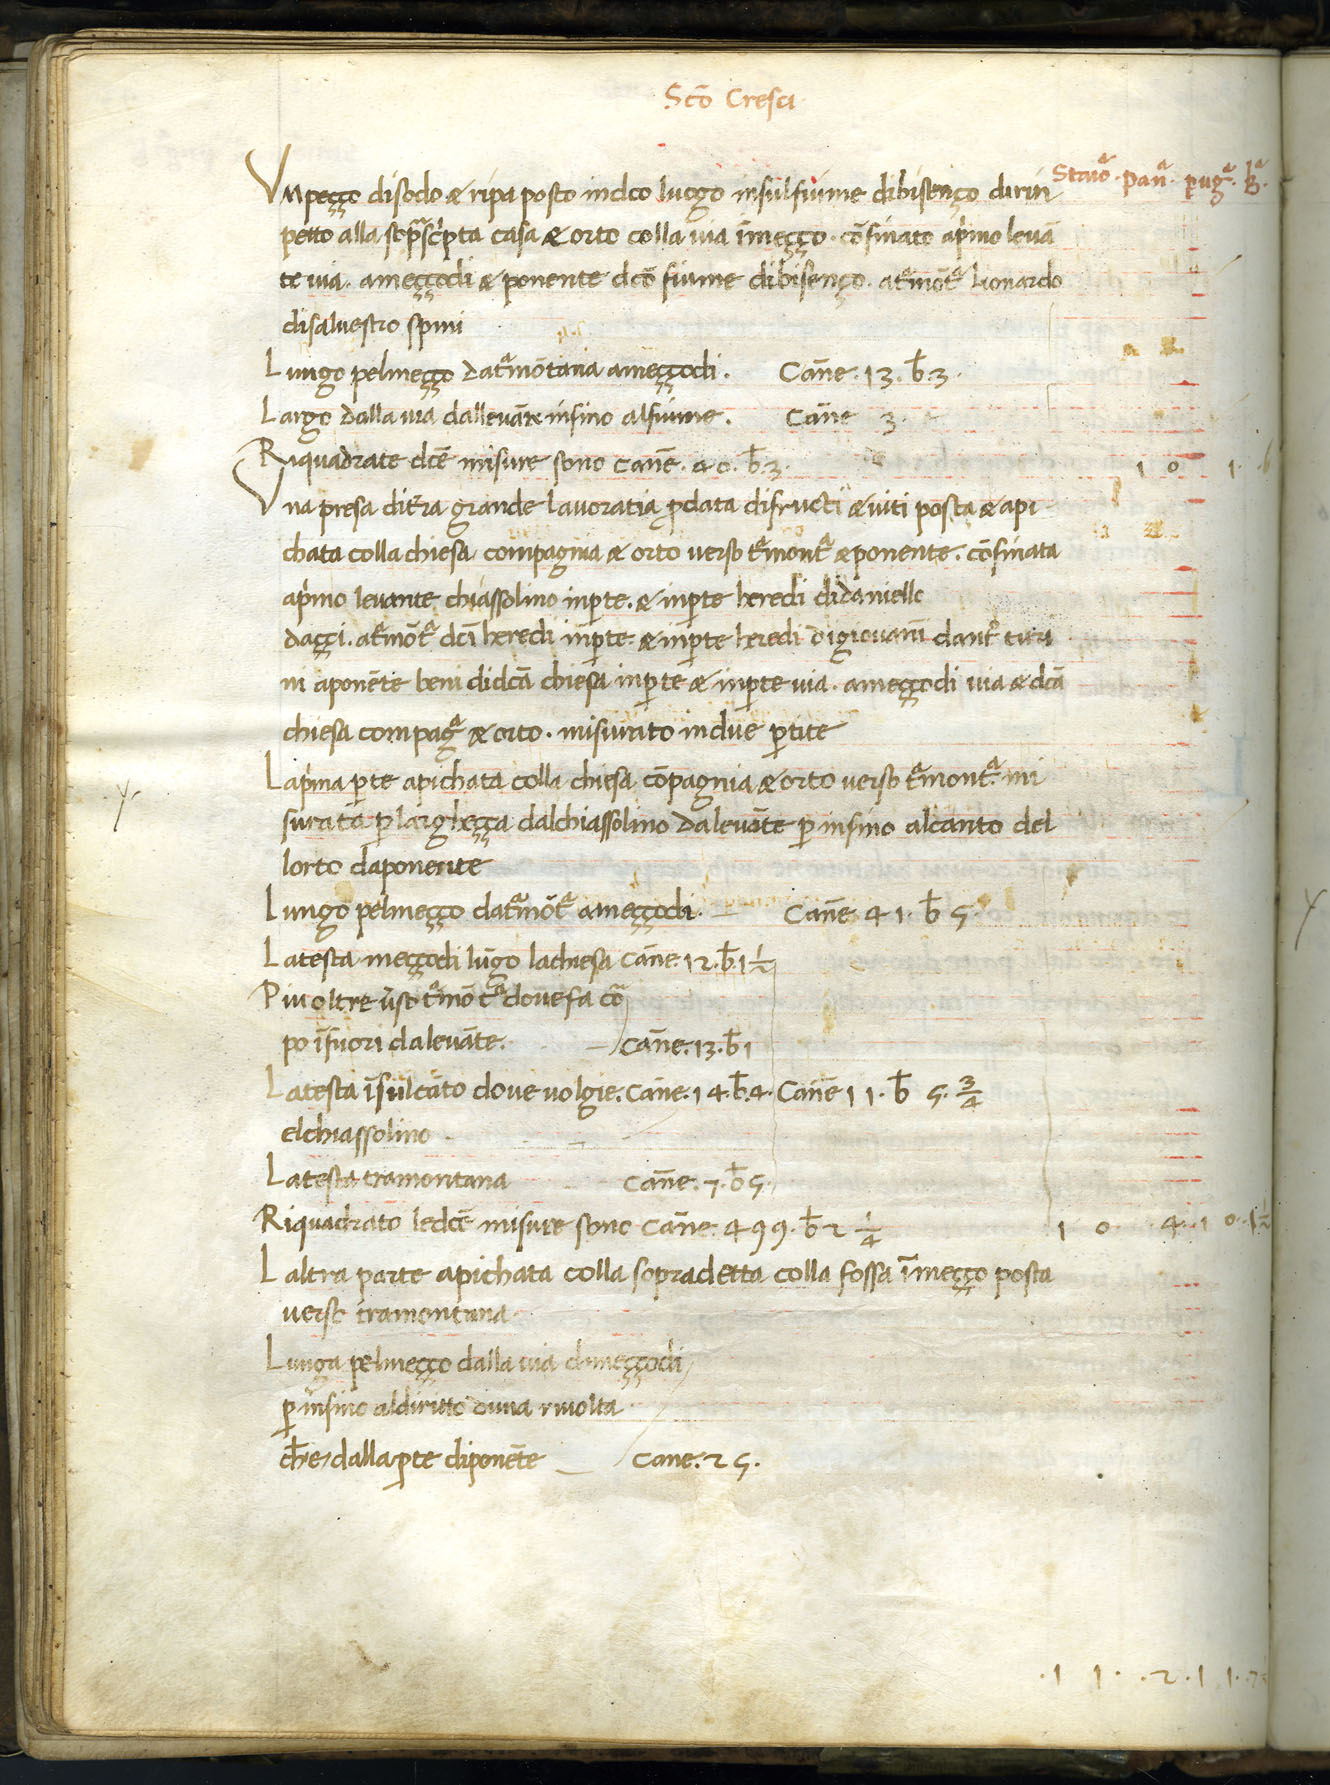 Scõ Cresci
Staioᷓ · panᷓ · pugᷓ · bᷓ ·
Vn peçço di sodo & ripa posto in dco luogo in sul fiume di bisenço dirin
petto alla sop̃ascripta casa & orto colla uia ĩ meçço · cõfinato a p̃mo leuã
te uia · a meççodi & ponente dcõ fiume di bisenço · a tᷓmõtᷓ lionardo
di saluestro spini
Lungo pel meçço da tᷓmõtana a meççodi · Cañe · 13 · b̄ · 3 ·
Largo dalla uia dalleuãte insino al fiume · Cañe 3 ·
Riquadrate dcẽ misure sono cañe · 40 · b̄ · 3 · 1 0 1 · 6
Vna presa di tẽra grande lauoratia ꝑdata di fructi & uiti posta & api
chata colla chiesa compagnia & orto verso tᷓmontᷓ & ponente · cõfinata
a p̃mo leuante chiassolino in ꝑte · & in ꝑte heredi di daniello
daggi · a tᷓmõtᷓ dcĩ heredi in ꝑte & in ꝑte heredi di giouañi dantᷓ
ni a ponẽte beni di dcã chiesa in ꝑte & in ꝑte uia · a meççodi uia & dcã
chiesa compagᷓ & orto · misurato in due ꝑtite
La p̃ma ꝑte apichata colla chiesa cõpagnia & orto verso tᷓmontᷓ · mi
surata ꝑ larghecça dal chiassolino da leuãte ꝑ insino al canto del
lorto da ponente
Lungo pel meçço da tᷓmõtᷓ a meççodi · Cañe · 41 · b̄ 5 ·
La testa meççodi lũgo la chiesa cañe · 12 · b̄ · 1 1/2
Piu oltre ũso tᷓmõtᷓ doue fa cõ
po ĩ fuori da leuãte · cañe · 13 · b̄ 1
La testa ĩ sul cãto doue uolgie · Cañe · 14 · b̄ · 4 · Cañe 11 · b̄ 5 · 3/4
el chiassolino
La testa tramontana cañe · 7 · b̄ 5 ·
Riquadrato le dcẽ misure sono cañe · 499 · b̄ 2 1/4 1 0 · 4 · 1 0 · 1 1/2
Laltra parte apichata colla sopradetta colla fossa ĩ meçço posta
verso tramontana
Lunga pel meçço dalla uia di meççodi
ꝑ insino al diritto duna riuolta
che dalla ꝑte di ponẽte Cane · 25 ·
· 1 1 · · 2 · 1 1 ·